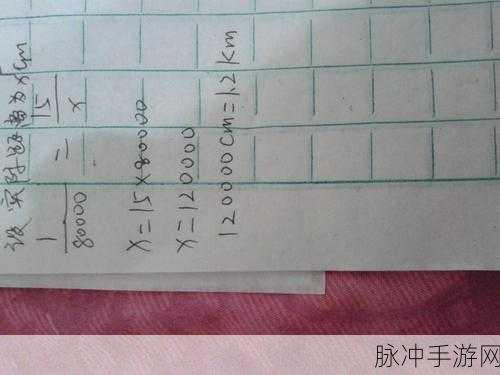 设实际距离为xcm
1/80000 = 15/x
x=15×80000
x=120000
120000cm=1.2km
脉冲手游网